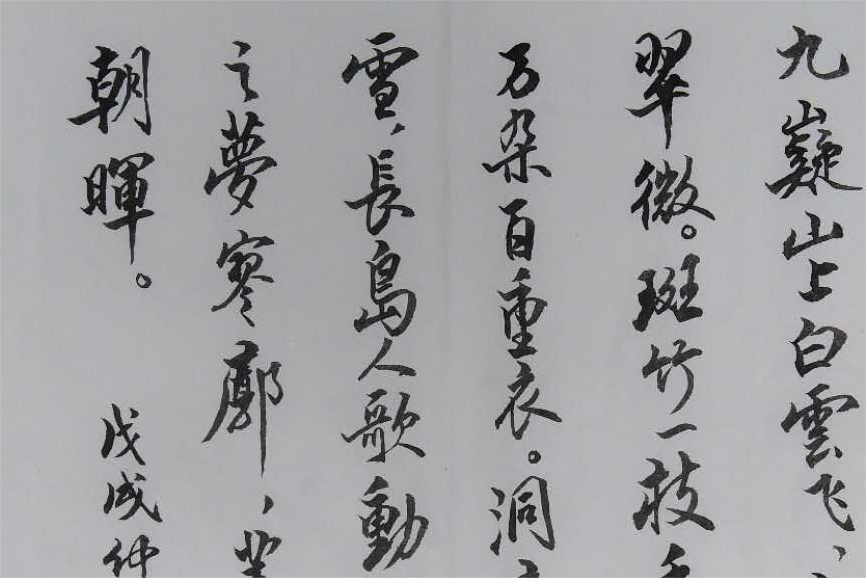 九嶷山上白雲飞、
翠微。斑竹一枝千
万朶百重衣。洞
雪、長島人歌動
之夢寥廓、芙
朝暉。
戊戌仲